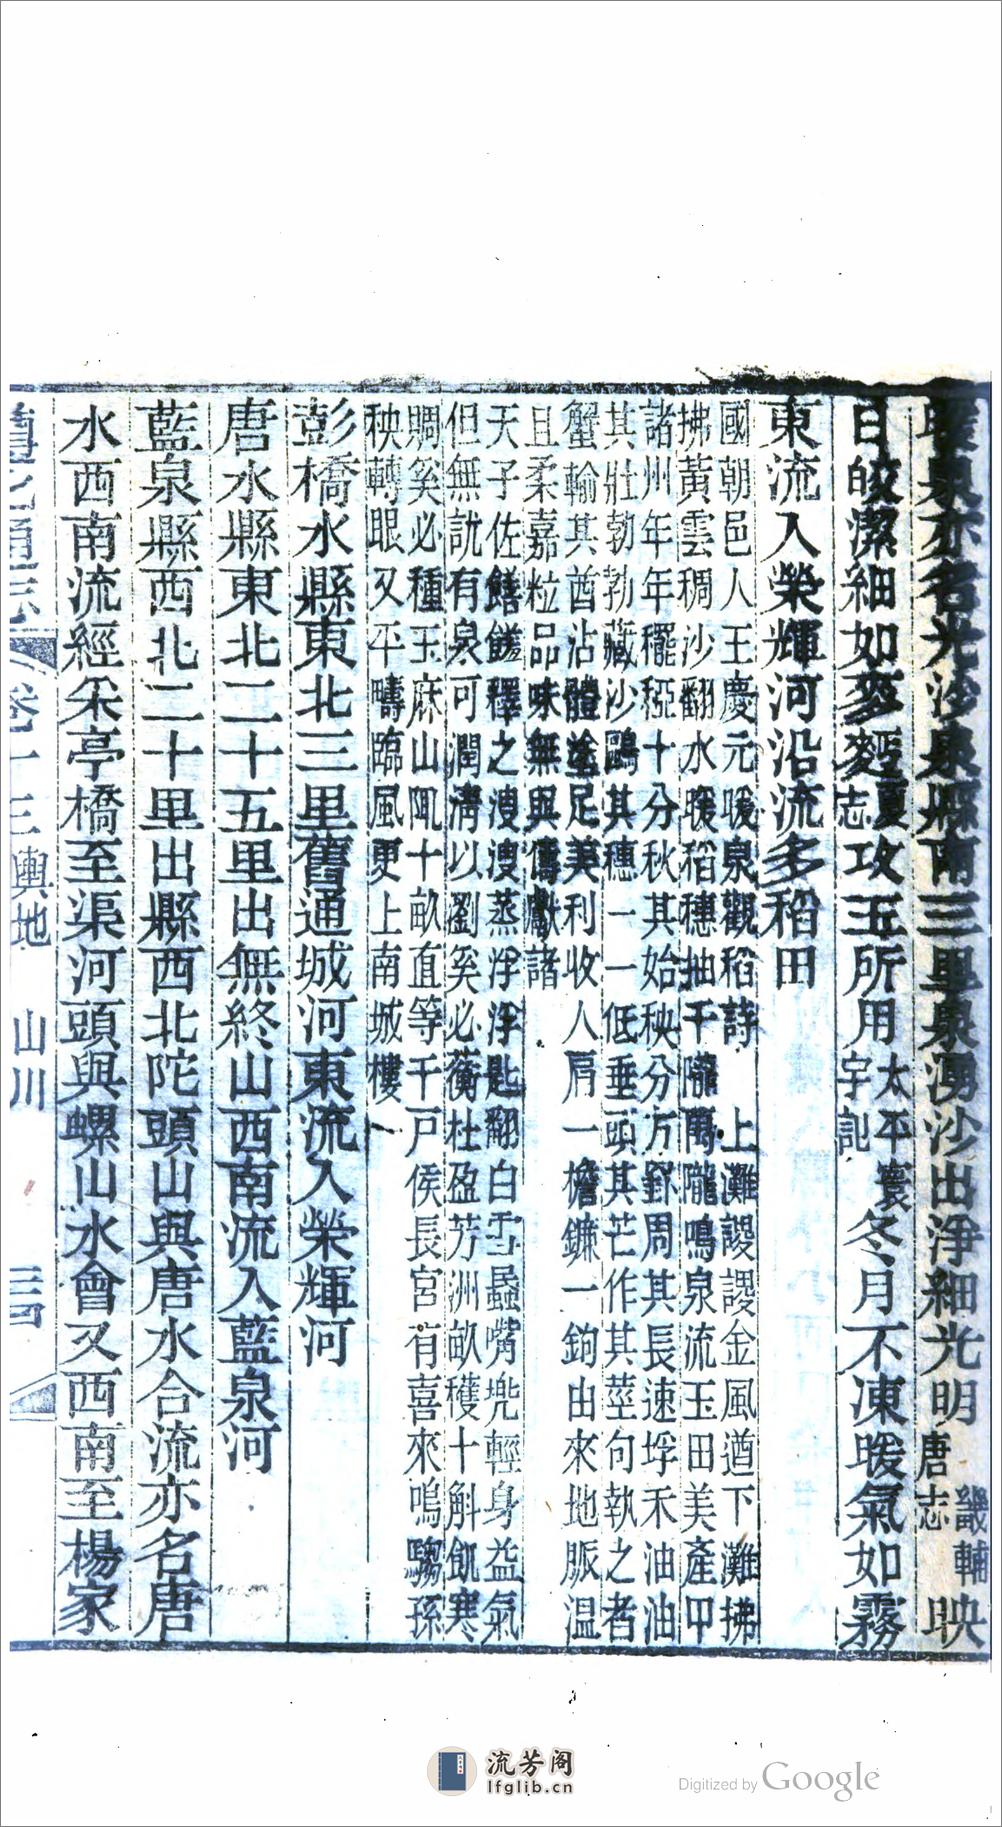 暖泉亦名光沙泉縣南三里泉湧沙出淨細光明唐志畿輔映
日皎潔細如麥麪夏志攻玉所用太平寰宇記冬月不凍暖氣如霧
東流入榮輝河沿流多稻田
國朝邑人王慶元暖泉觀稻詩　上灘謖謖金風遒下灘拂
拂黃雲稠沙翻水暖稻穗抽千隴萬隴鳴泉流玉田美產甲
諸州年年䆉稏十分秋其始秧分方罫周其長速垺禾油油
其壯勃勃藏沙鷗其穗一一低垂頭其芒作其莖句執之者
蟹輸其酋沾體塗足美利收人肩一檐鐮一鉤出來地脈溫
且柔嘉粒品味無與儔獻諸
天子佐饍饈釋之溲溲蒸浮浮匙翻白雪蟲嘴兠輕身益氣
但無訧有泉可潤濟以劉奚必蘅杜盈芳洲畝穫十斛飢寒
賙奚必種玉麻山陬十畝直等千戸侯長宮有喜來鳴騶孫
秧轉眼又平疇臨風更上南城樓
彭橋水縣東北三里舊通城河東流入榮輝河
唐水縣東北二十五里出無終山西南流入藍泉河
藍泉縣西北二十里出縣西北陀頭山與唐水合流亦名唐
水西南流經采亭橋至渠河頭與螺山水會又西南至楊家
遵化通志　卷十三輿地　山川　三四
流芳阁
lfglib.cn
Digitized by Google